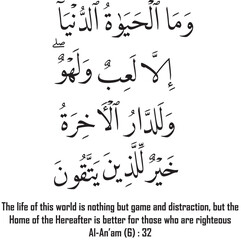 وَمَا ٱلْحَيَوٰةُ ٱلدُّنْيَآ
إِلَّا لَعِبٌ وَلَهْوٌ ۖ
وَلَلدَّارُ ٱلْأَخِرَةُ
خَيْرٌ لِّلَّذِينَ يَتَّقُونَ
The life of this world is nothing but game and distraction, but the
Home of the Hereafter is better for those who are righteous
Al-An'am (6) : 32